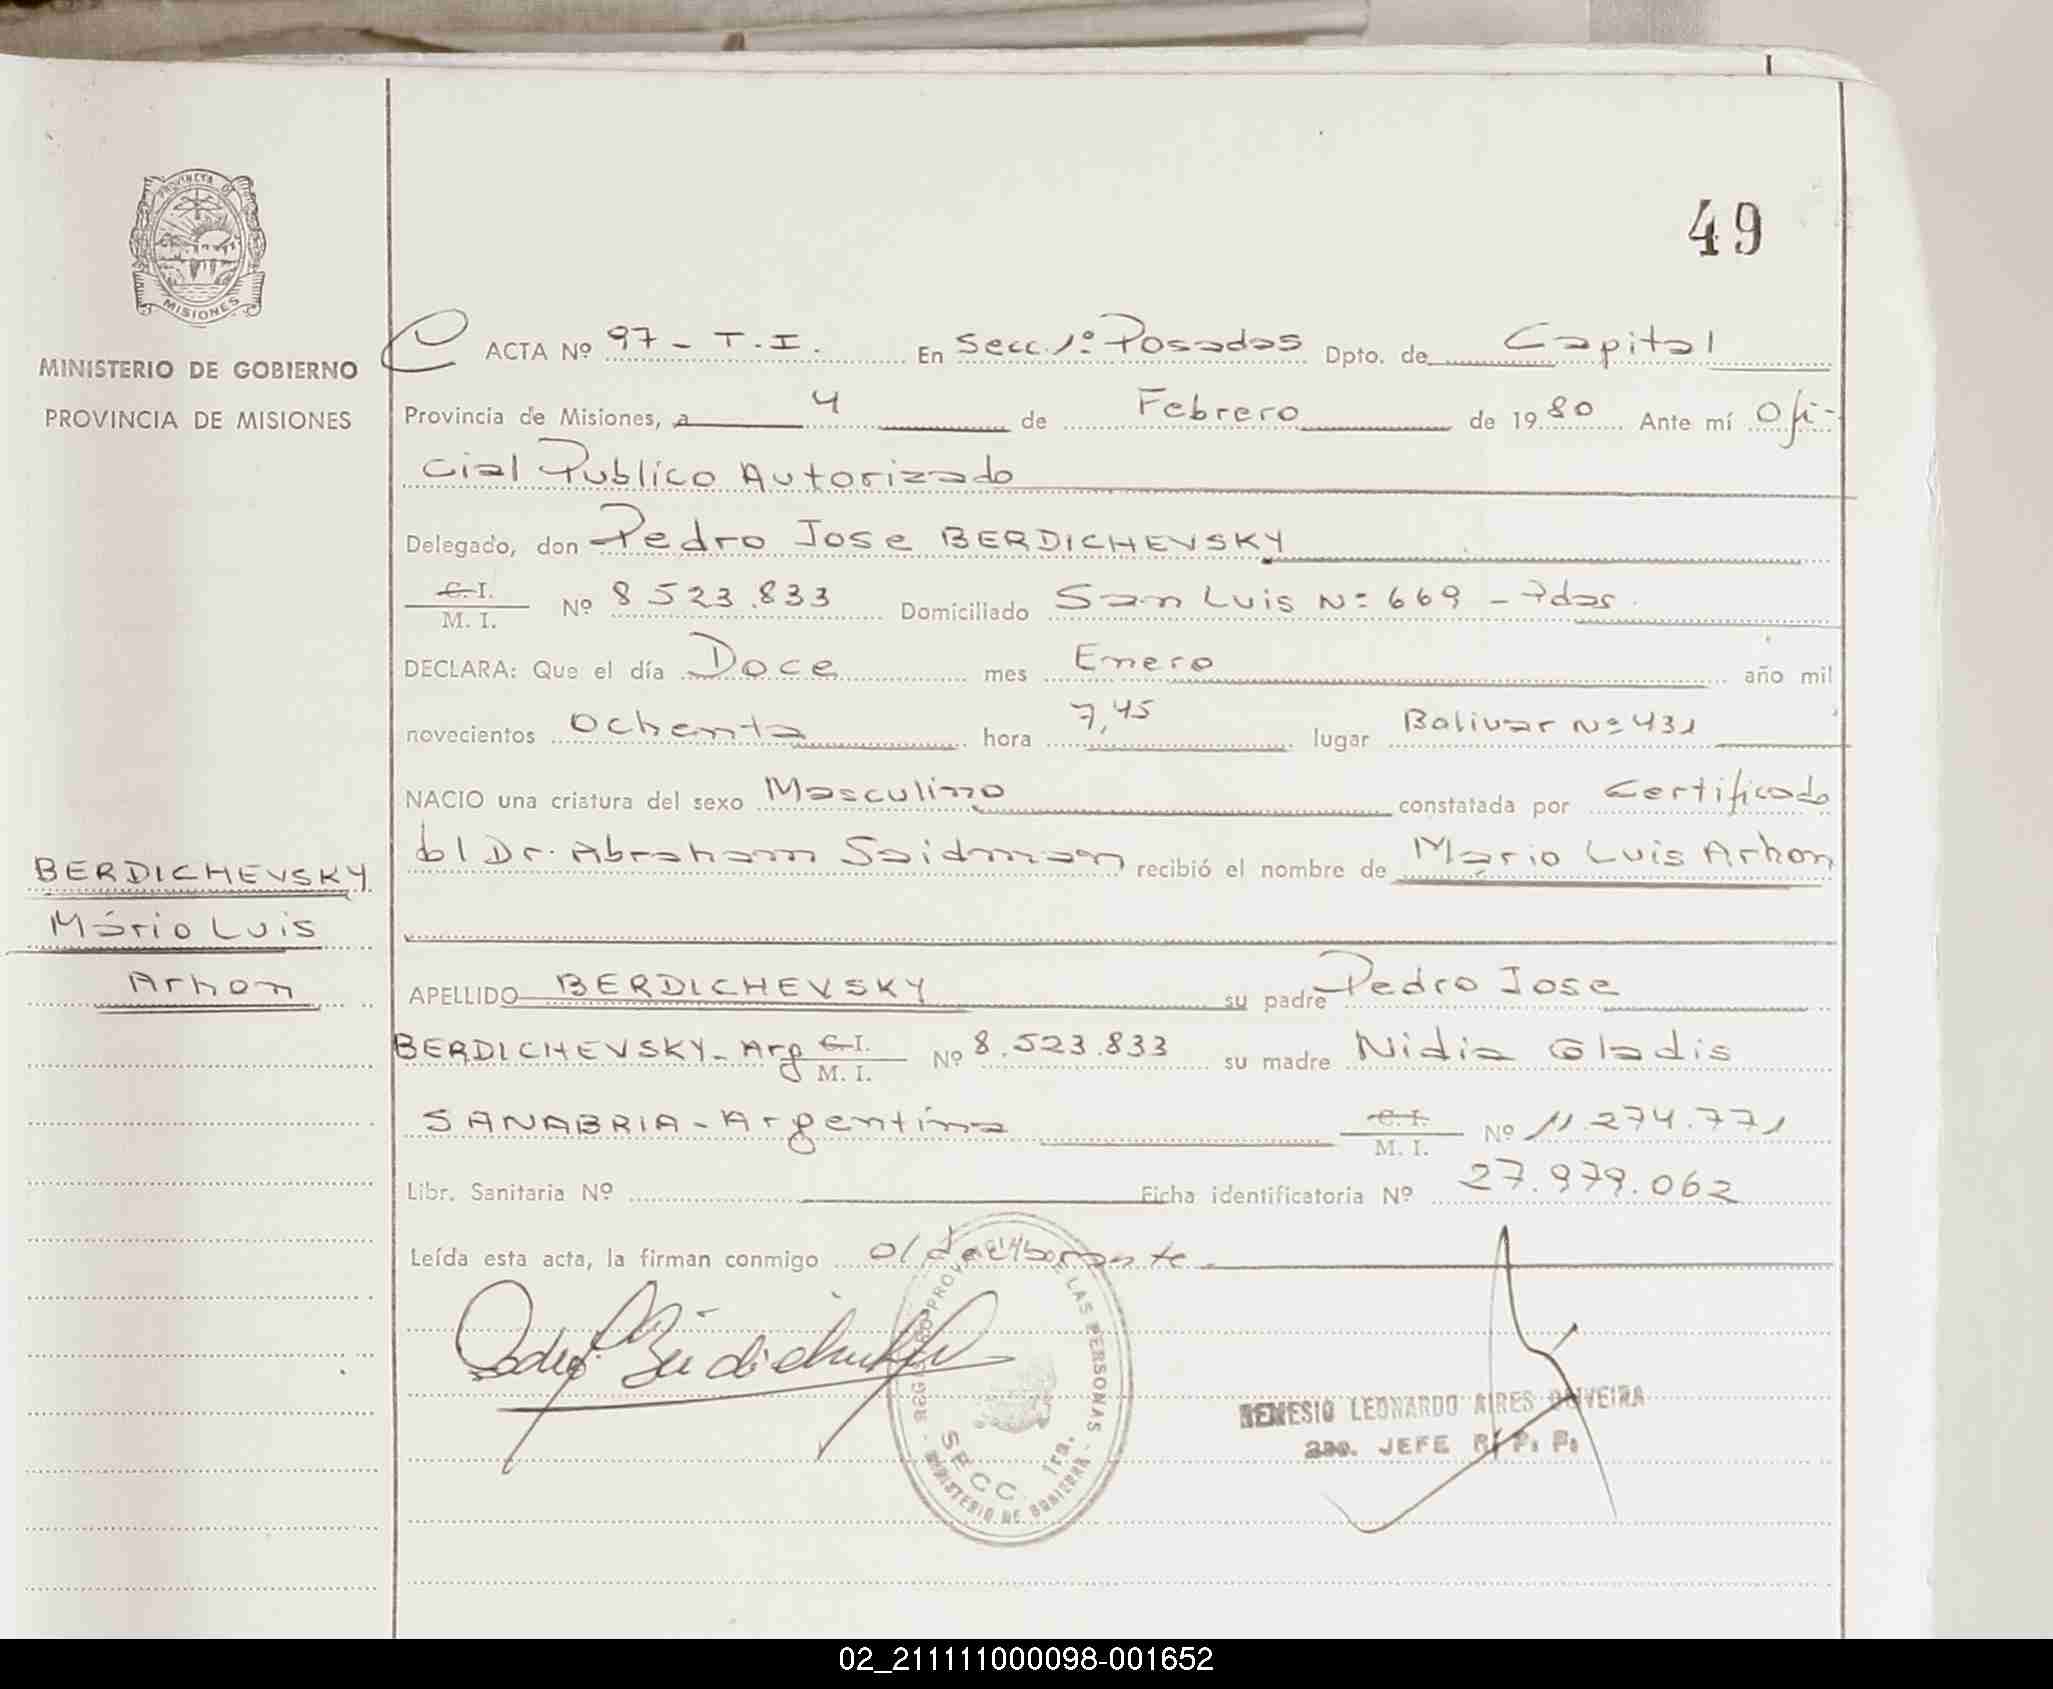 49
PROVINCIA DE
MISIONES
MINISTERIO DE GOBIERNO
PROVINCIA DE MISIONES
ACTA Nº 97 - T.I. En Secc. 1º Posadas Dpto. de Capital
Provincia de Misiones, a 4 de Febrero de 1980 Ante mí Ofi-
cial Publico Autorizado
Delegado, don Pedro Jose BERDICHEVSKY
C. I.
M. I. Nº 8523.833 Domiciliado San Luis Nº 669 - Pdas.
DECLARA: Que el día Doce mes Enero año mil
novecientos Ochenta hora 7,45 lugar Bolivar Nº 431
NACIO una criatura del sexo Masculino constatada por Certificado
dl Dr. Abraham Saidman recibió el nombre de Mario Luis Arhon
BERDICHEVSKY
Mário Luis
Arhon
APELLIDO BERDICHEVSKY su padre Pedro Jose
BERDICHEVSKY - Arg C. I.
M. I. Nº 8.523.833 su madre Nidia Gladis
SANABRIA - Argentina C. I.
M. I. Nº 11.274.771
Libr. Sanitaria Nº Ficha identificatoria Nº 27.979.062
Leída esta acta, la firman conmigo
REGISTRO PROVINCIAL DE LAS PERSONAS
SECC. 1ra.
MINISTERIO DE GOBIERNO
NEMESIO LEONARDO AIRES OLIVEIRA
2do. JEFE R. P. P.
02_211111000098-001652